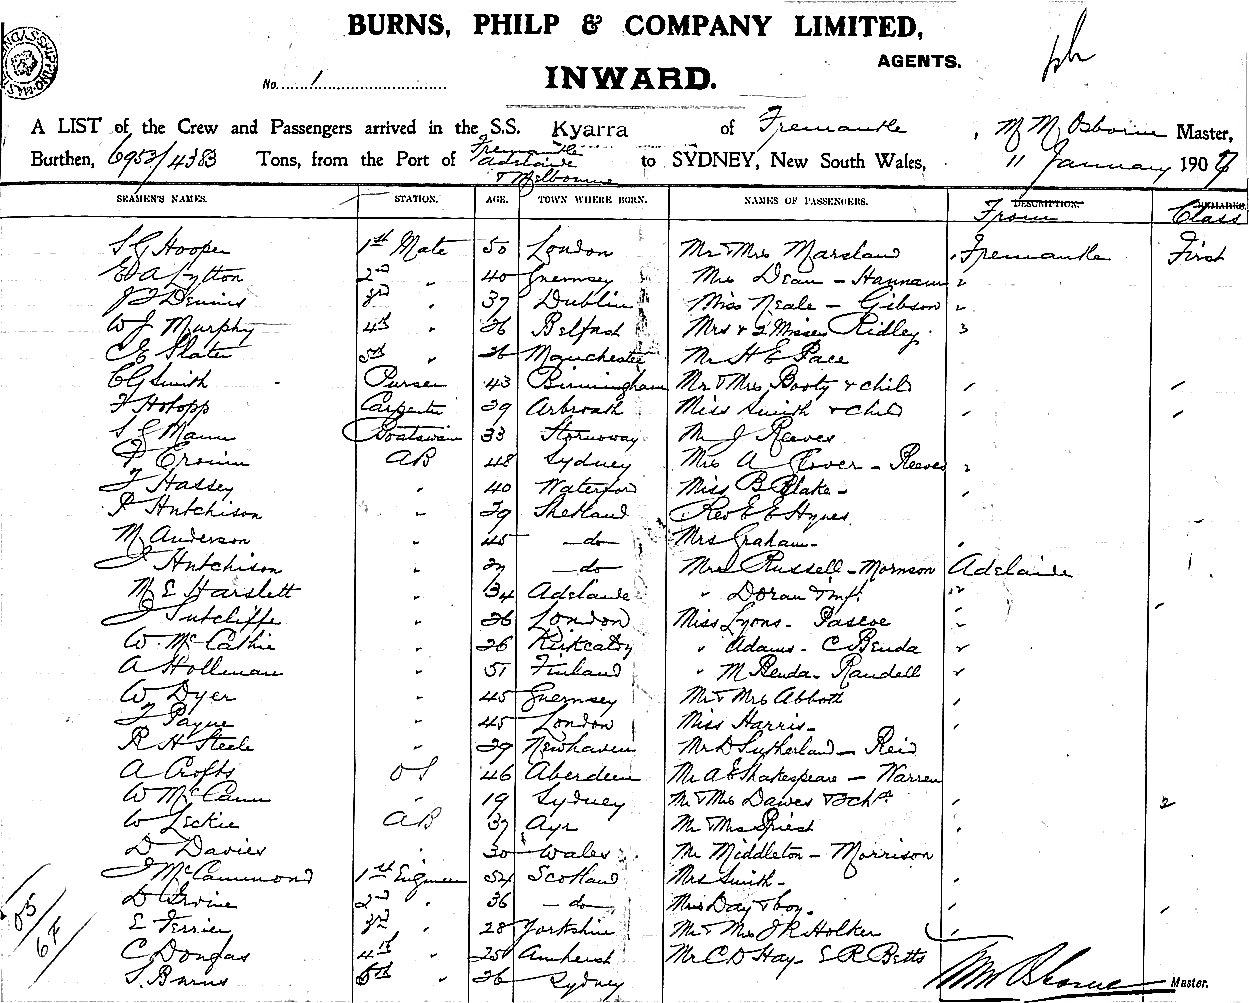 BURNS, PHILP & COMPANY LIMITED,
AGENTS.
No. 1
INWARD.
A LIST of the Crew and Passengers arrived in the S.S. Kyarra of Fremantle, M M Osborne Master,
Burthen, 6953/4383 Tons, from the Port of Fremantle Adelaide & Melbourne to SYDNEY, New South Wales, 11 January 1907
SEAMEN'S NAMES. STATION. AGE. TOWN WHERE BORN. NAMES OF PASSENGERS. DESCRIPTION. From REMARKS. Class
S G Hooper 1st Mate 50 London Mr & Mrs Fremantle First
2nd " 40 Guernsey Mrs Dean - Hannam "
Dennis 3rd " 37 Dublin Miss Neale - Gibson "
W J Murphy 4th " 26 Belfast Mrs & 2 Misses Ridley
C E Slater 5th " 26 Manchester Mr H E Pace
C G Smith Purser 43 Birmingham Mr & Mrs Booty & child
F Holopp Carpenter 29 Arbroath Miss Smith & Child
S G Mann Boatswain 33 Stornoway Mr J Reeves
AB 48 Sydney Mrs A Glover - Reeves
Hassey " 40 Waterford Miss B Blake -
Hutchison " 29 Shetland Rev E E Hynes
M Anderson " 45 - do - Mrs Graham -
J Hutchison " - do - Mrs Russell - Morrison Adelaide
M E Harslett " 34 Adelaide " Doran & inft "
J Sutcliffe " 26 London Miss Lyons - Pascoe
W McCathie " 26 Kirkcaldy " Adams - C Benda
A Hollman " 51 Finland " M Benda - Randell
W Dyer " 45 Guernsey Mr & Mrs Abbott
Payne " 45 London Miss Harris -
R H Steele " 29 Newhaven Mr D Sutherland - Reid
A Crofts OS 46 Aberdeen Mr A E Shakespeare - Warren
W McCann " 19 Sydney Mr & Mrs Dawes & 2 chn
W Leckie AB 37 Ayr Mr Mrs Priest
D Davies 30 Wales Mr Middleton - Morrison
J McCammond 1st Engineer 54 Scotland Mrs Smith -
D Irvine 2nd " 36 - do - Mrs Day & boy
E Ferrier 3rd " 28 Yorkshire Mr & Mrs J R Holker
C Douglas 4th " 25 Amherst Mr C D Hay - E R Betts
S. Burns 5th " 26 Sydney
M M Osborne Master.